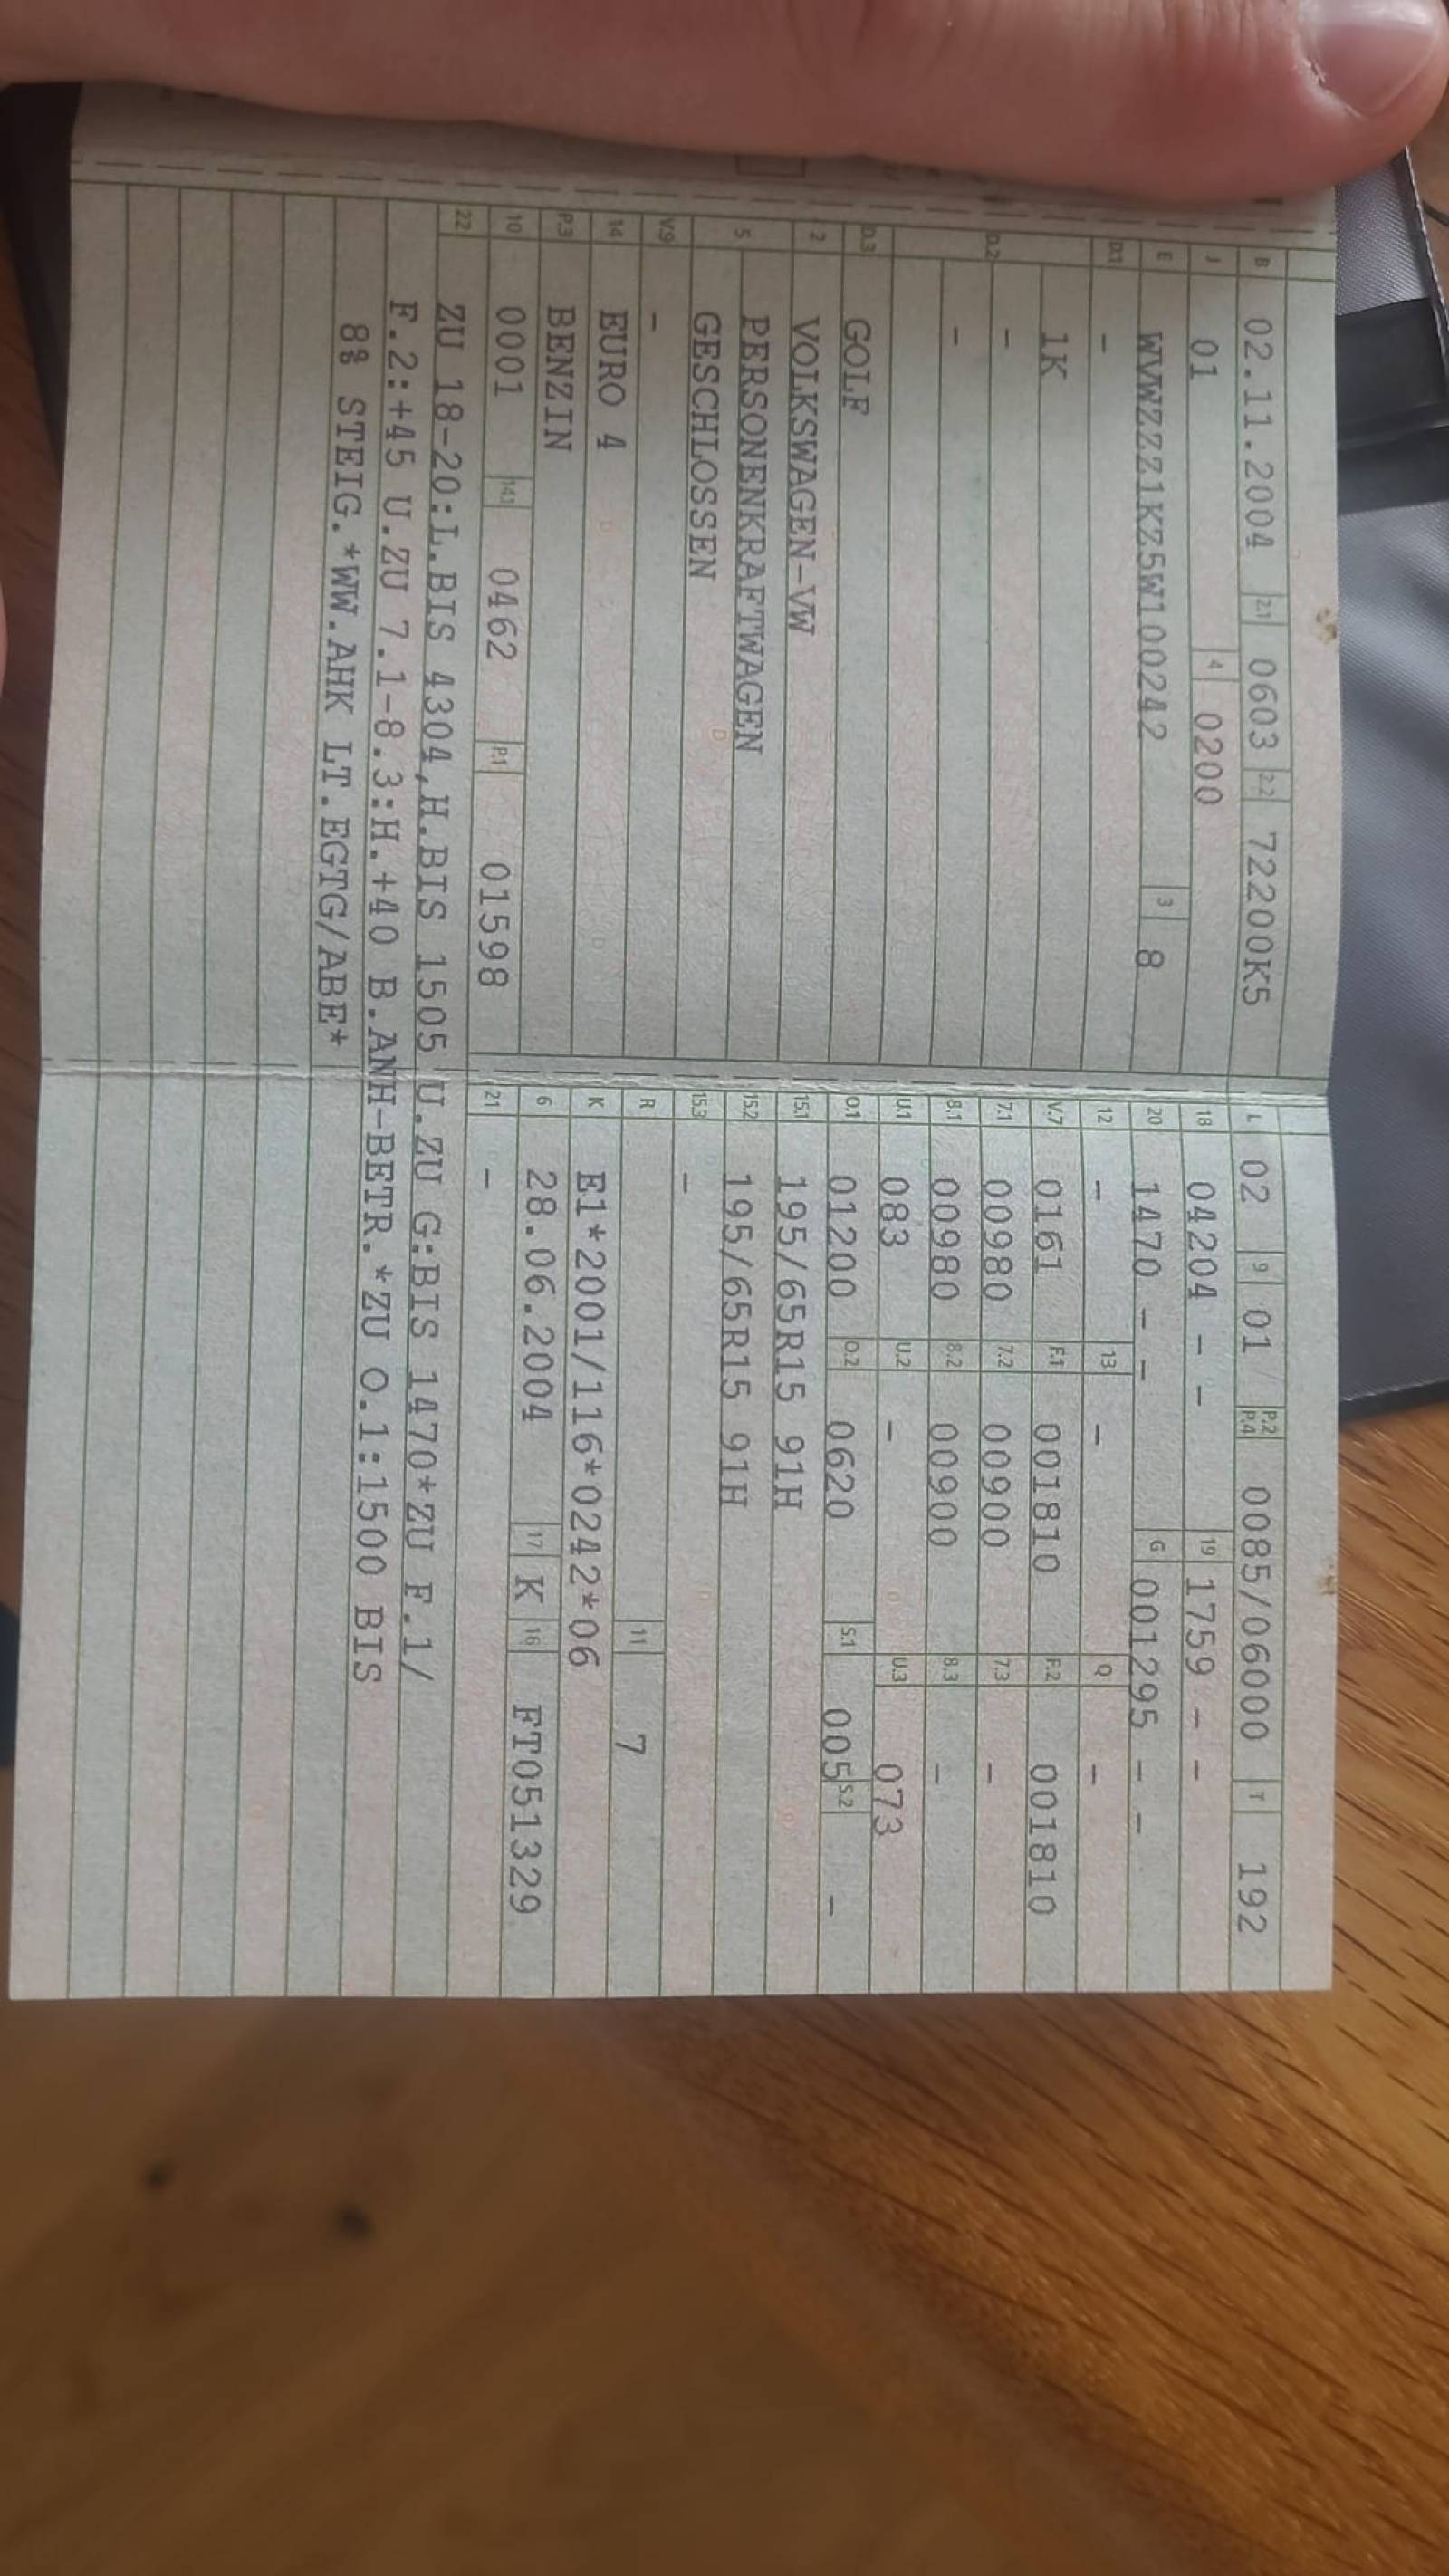 B 02.11.2004 2.1 0603 2.2 72200K5
J 01 4 0200
E WVWZZZ1KZ5W100242 3 8
D.1 -
1K
D.2 -
-
D.3 GOLF
2 VOLKSWAGEN-VW
5 PERSONENKRAFTWAGEN
GESCHLOSSEN
V.9 -
14 EURO 4
P.3 BENZIN
10 0001 14.1 0462 P.1 01598
L 02 9 01 P.2 P.4 0085/06000 T 192
18 04204 - - 19 1759 - -
20 1470 - - G 001295 - -
12 - 13 - Q -
V.7 0161 F.1 001810 F.2 001810
7.1 00980 7.2 00900 7.3 -
8.1 00980 8.2 00900 8.3 -
U.1 083 U.2 - U.3 073
O.1 01200 O.2 0620 S.1 005 S.2 -
15.1 195/65R15 91H
15.2 195/65R15 91H
15.3 -
R 11 7
K E1*2001/116*0242*06
6 28.06.2004 17 K 16 FT051329
21 -
22 ZU 18-20:L.BIS 4304,H.BIS 1505 U.ZU G:BIS 1470*ZU F.1/
F.2:+45 U.ZU 7.1-8.3:H.+40 B.ANH-BETR.*ZU O.1:1500 BIS
8% STEIG.*WW.AHK LT.EGTG/ABE*